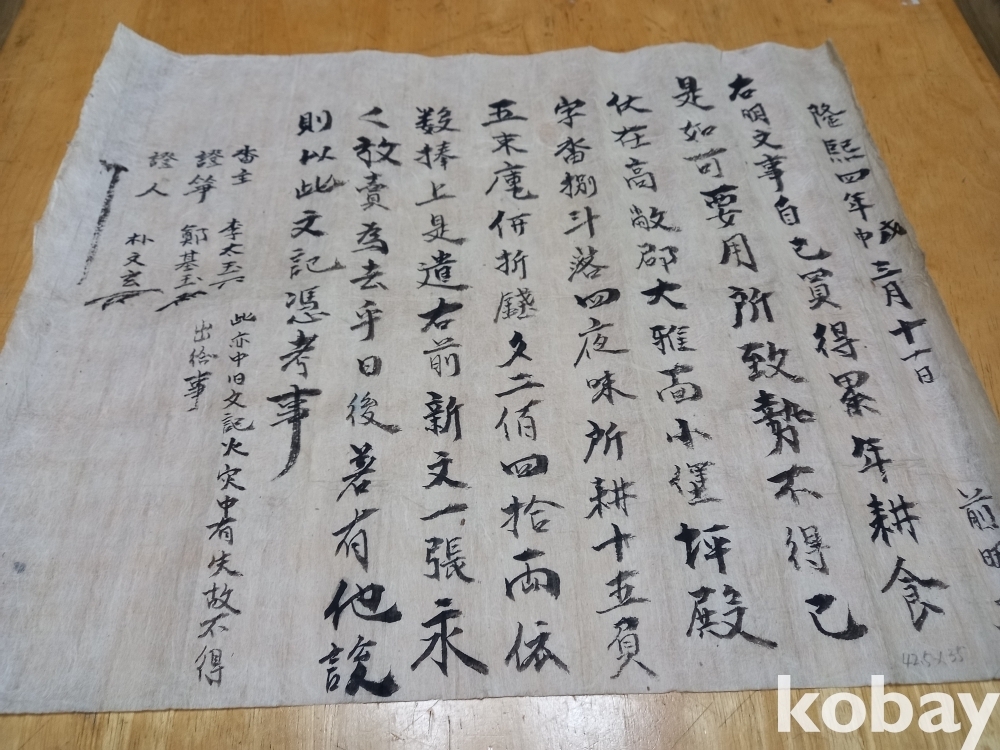 隆熙四年 三月十一日 前明
右明文事自己買得累年耕食
是如可要用所致勢不得已
伏在高敞郡大雅面小 坪殿
字畓捌斗落四夜味所耕十五負
五束庫 折 文二佰四拾兩依
数捧上是遣右前新文一張永
〻放賣為去乎日後若有他說
則以此文記憑考事
畓主 李太玉
證筆 鄭基玉
證人 朴文玄
此亦中旧文記火灾中有失故不得
出給事
42.5 X 35
kobay